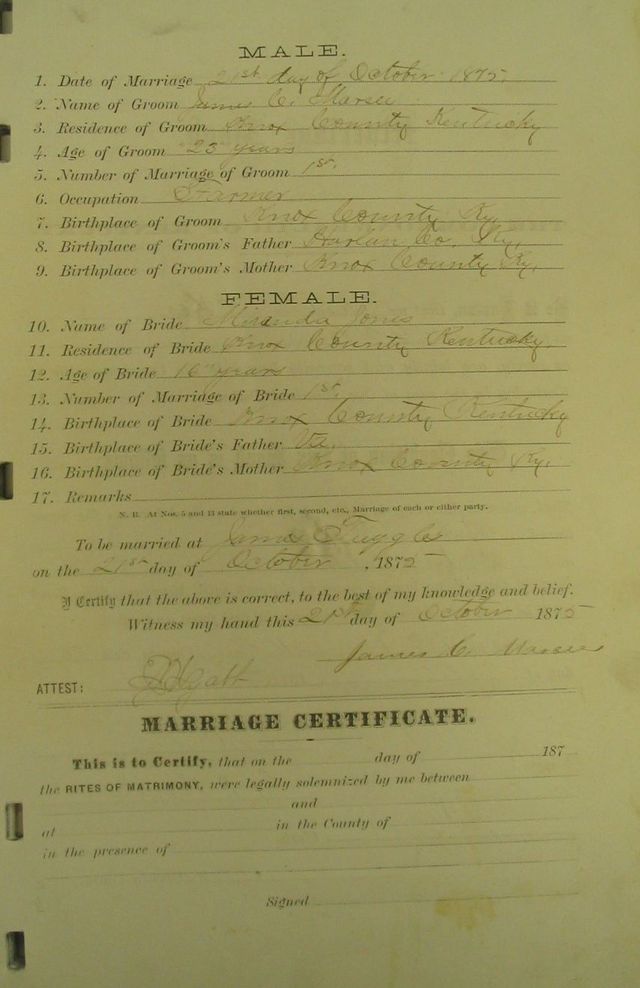 MALE.
1. Date of Marriage 21st day of October 1875
2. Name of Groom James C.
3. Residence of Groom Knox County Kentucky
4. Age of Groom "23" years
5. Number of Marriage of Groom 1st.
6. Occupation Farmer
7. Birthplace of Groom Knox County Ky.
8. Birthplace of Groom's Father Harlan Co, Ky,
9. Birthplace of Groom's Mother Knox County Ky.
FEMALE.
10. Name of Bride Miranda Jones
11. Residence of Bride Knox County Kentucky.
12. Age of Bride 16 years
13. Number of Marriage of Bride 1st.
14. Birthplace of Bride Knox County Kentucky
15. Birthplace of Bride's Father Va.
16. Birthplace of Bride's Mother Knox County Ky.
17. Remarks
N. B. At Nos. 5 and 13 state whether first, second, etc., Marriage of each or either party.
To be married at James Tuggles
on the 21st day of October, 1875
I Certify that the above is correct, to the best of my knowledge and belief.
Witness my hand this 21st day of October 1875
James C.
ATTEST:
MARRIAGE CERTIFICATE.
This is to Certify, that on the day of 187
the RITES OF MATRIMONY, were legally solemnized by me between
and
at in the County of
in the presence of
Signed